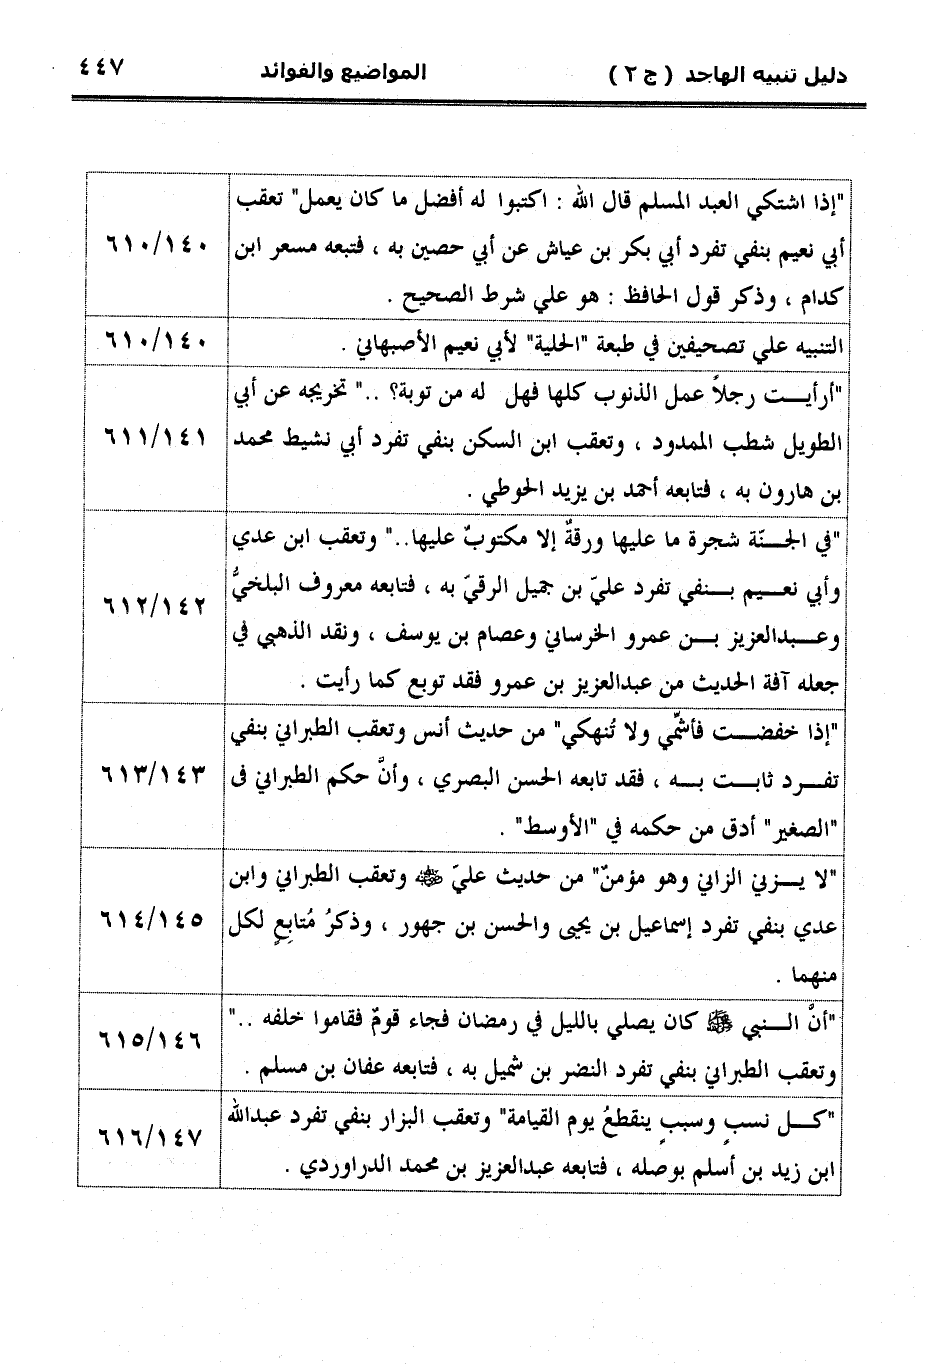 دليل تنبيه الهاجد ( ج ٢ ) المواضيع والفوائد ٤٤٧
"إذا اشتكي العبد المسلم قال الله : اكتبوا له أفضل ما كان يعمل" تعقب
أبي نعيم بنفي تفرد أبي بكر بن عياش عن أبي حصين به ، فتبعه مسعر ابن
كدام ، وذكر قول الحافظ : هو علي شرط الصحيح .
٦١٠/١٤٠
التنبيه علي تصحيفين في طبعة "الحلية" لأبي نعيم الأصبهاني .
٦١٠/١٤٠
"أرأيـــت رجلاً عمل الذنوب كلها فهل له من توبة؟ .." تخريجه عن أبي
الطويل شطب الممدود ، وتعقب ابن السكن بنفي تفرد أبي نشيط محمد
بن هارون به ، فتابعه أحمد بن يزيد الحوطي .
٦١١/١٤١
"في الجــنّة شجرة ما عليها ورقةٌ إلا مكتوبٌ عليها.." وتعقب ابن عدي
وأبي نعــيم بــنفي تفرد عليّ بن جميل الرقيّ به ، فتابعه معروف البلخيُّ
وعــبدالعزيز بــن عمرو الخرساني وعصام بن يوسف ، ونقد الذهبي في
جعله آفة الحديث من عبدالعزيز بن عمرو فقد توبع كما رأيت .
٦١٢/١٤٢
"إذا خفضــت فأشمِّي ولا تُنهكي" من حديث أنس وتعقب الطبراني بنفي
تفــرد ثابــت بــه ، فقد تابعه الحسن البصري ، وأنَّ حكم الطبراني فى
"الصغير" أدق من حكمه في "الأوسط" .
٦١٣/١٤٣
"لا يــزني الزاني وهو مؤمنٌ" من حديث عليّ ﷺ وتعقب الطبراني وابن
عدي بنفي تفرد إسماعيل بن يحيى والحسن بن جهور ، وذكرُ مُتابِعٍ لكل
منهما .
٦١٤/١٤٥
"أنَّ الــنبي ﷺ كان يصلي بالليل في رمضان فجاء قومٌ فقاموا خلفه .."
وتعقب الطبراني بنفي تفرد النضر بن شميل به ، فتابعه عفان بن مسلم .
٦١٥/١٤٦
"كــل نسبٍ وسببٍ ينقطعُ يوم القيامة" وتعقب البزار بنفي تفرد عبدالله
ابن زيد بن أسلم بوصله ، فتابعه عبدالعزيز بن محمد الدراوردي .
٦١٦/١٤٧